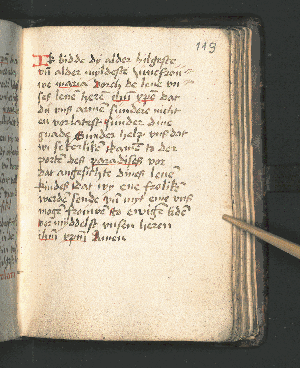 119
Ik bidde dy alder hilgeste
vn̄ alder mildeste Juncfrou
we maria dorch de leue vn
ses leuē herē ihū xpē dat
du my armē sundere nicht
en vorlatest sunder dine
gnade Sunder help vns dat
wy sekerlikē kamē to der
porten des paradises vor
dat angesichte dines leuē
kindes dat wy ene frolikē
werdē sende vn̄ myt eme vns
mogē frouwē to ewigē tidē
vormiddelst vnsen herern
ihm̄ xpm̄ Amen